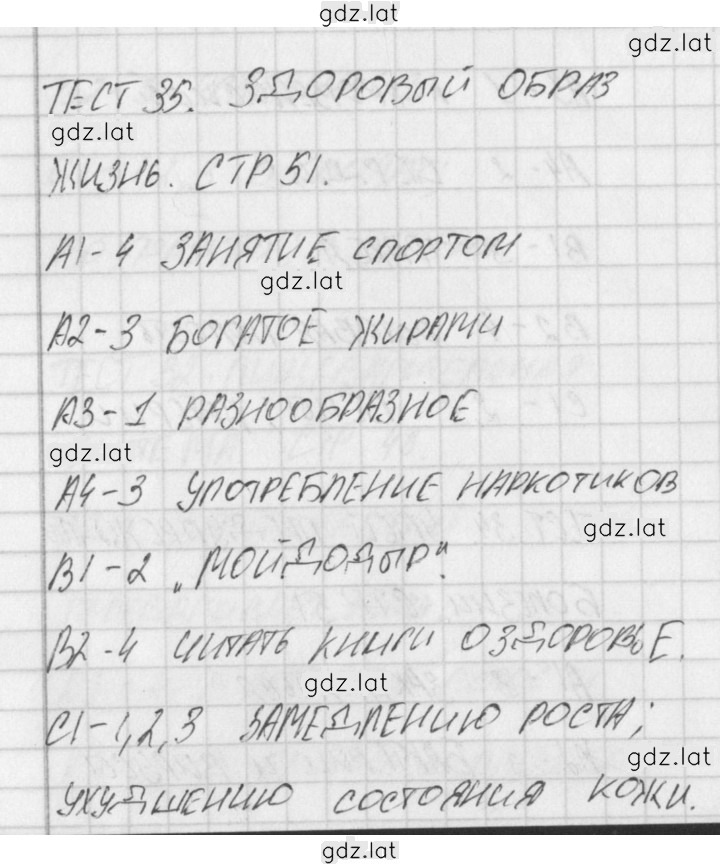 gdz.lat
gdz.lat
ТЕСТ 35. ЗДОРОВЫЙ ОБРАЗ
gdz.lat
ЖИЗНЬ. СТР 51.
А1-4 ЗАНЯТИЕ СПОРТОМ
gdz.lat
А2-3 БОГАТОЕ ЖИРАМИ
А3-1 РАЗНООБРАЗНОЕ
gdz.lat
А4-3 УПОТРЕБЛЕНИЕ НАРКОТИКОВ
gdz.lat
В1-2 „МОЙДОДЫР".
В2-4 ЧИТАТЬ КНИГИ О ЗДОРОВЬЕ.
gdz.lat
С1-1,2,3 ЗАМЕДЛЕНИЮ РОСТА;
gdz.lat
УХУДШЕНИЮ СОСТОЯНИЯ КОЖИ.
gdz.lat